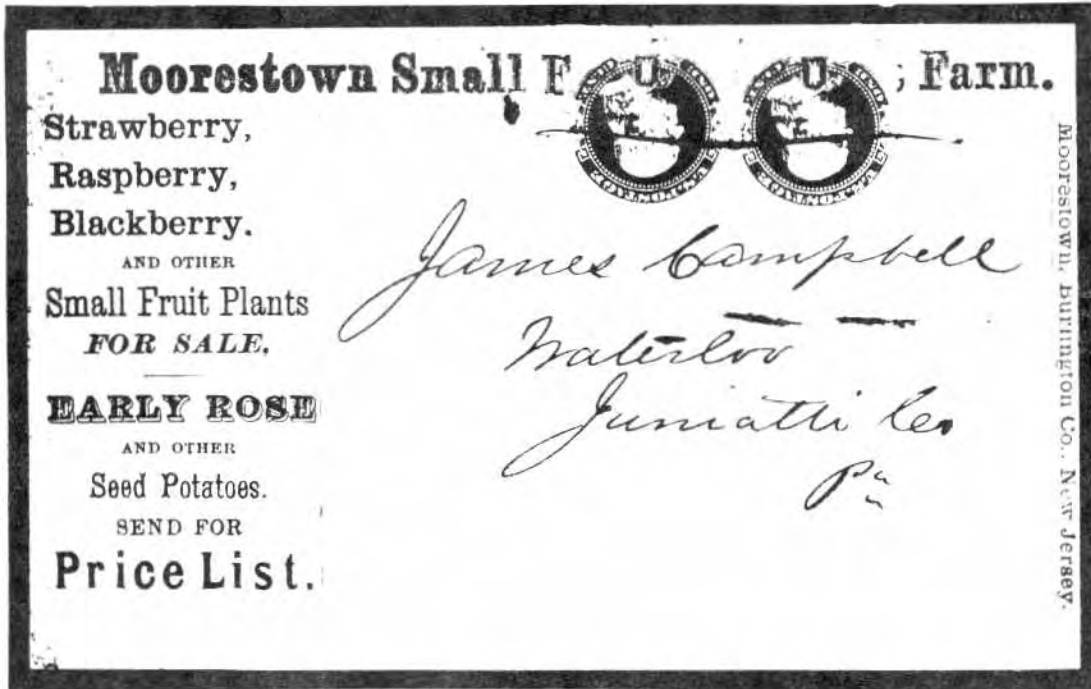 Moorestown Small F ; Farm.
Strawberry,
Raspberry,
Blackberry.
AND OTHER
Small Fruit Plants
FOR SALE.
EARLY ROSE
AND OTHER
Seed Potatoes.
SEND FOR
Price List.
U U
James Campbell
Waterloo
Juniatti Co
Pa
Moorestown, Burlington Co., New Jersey.